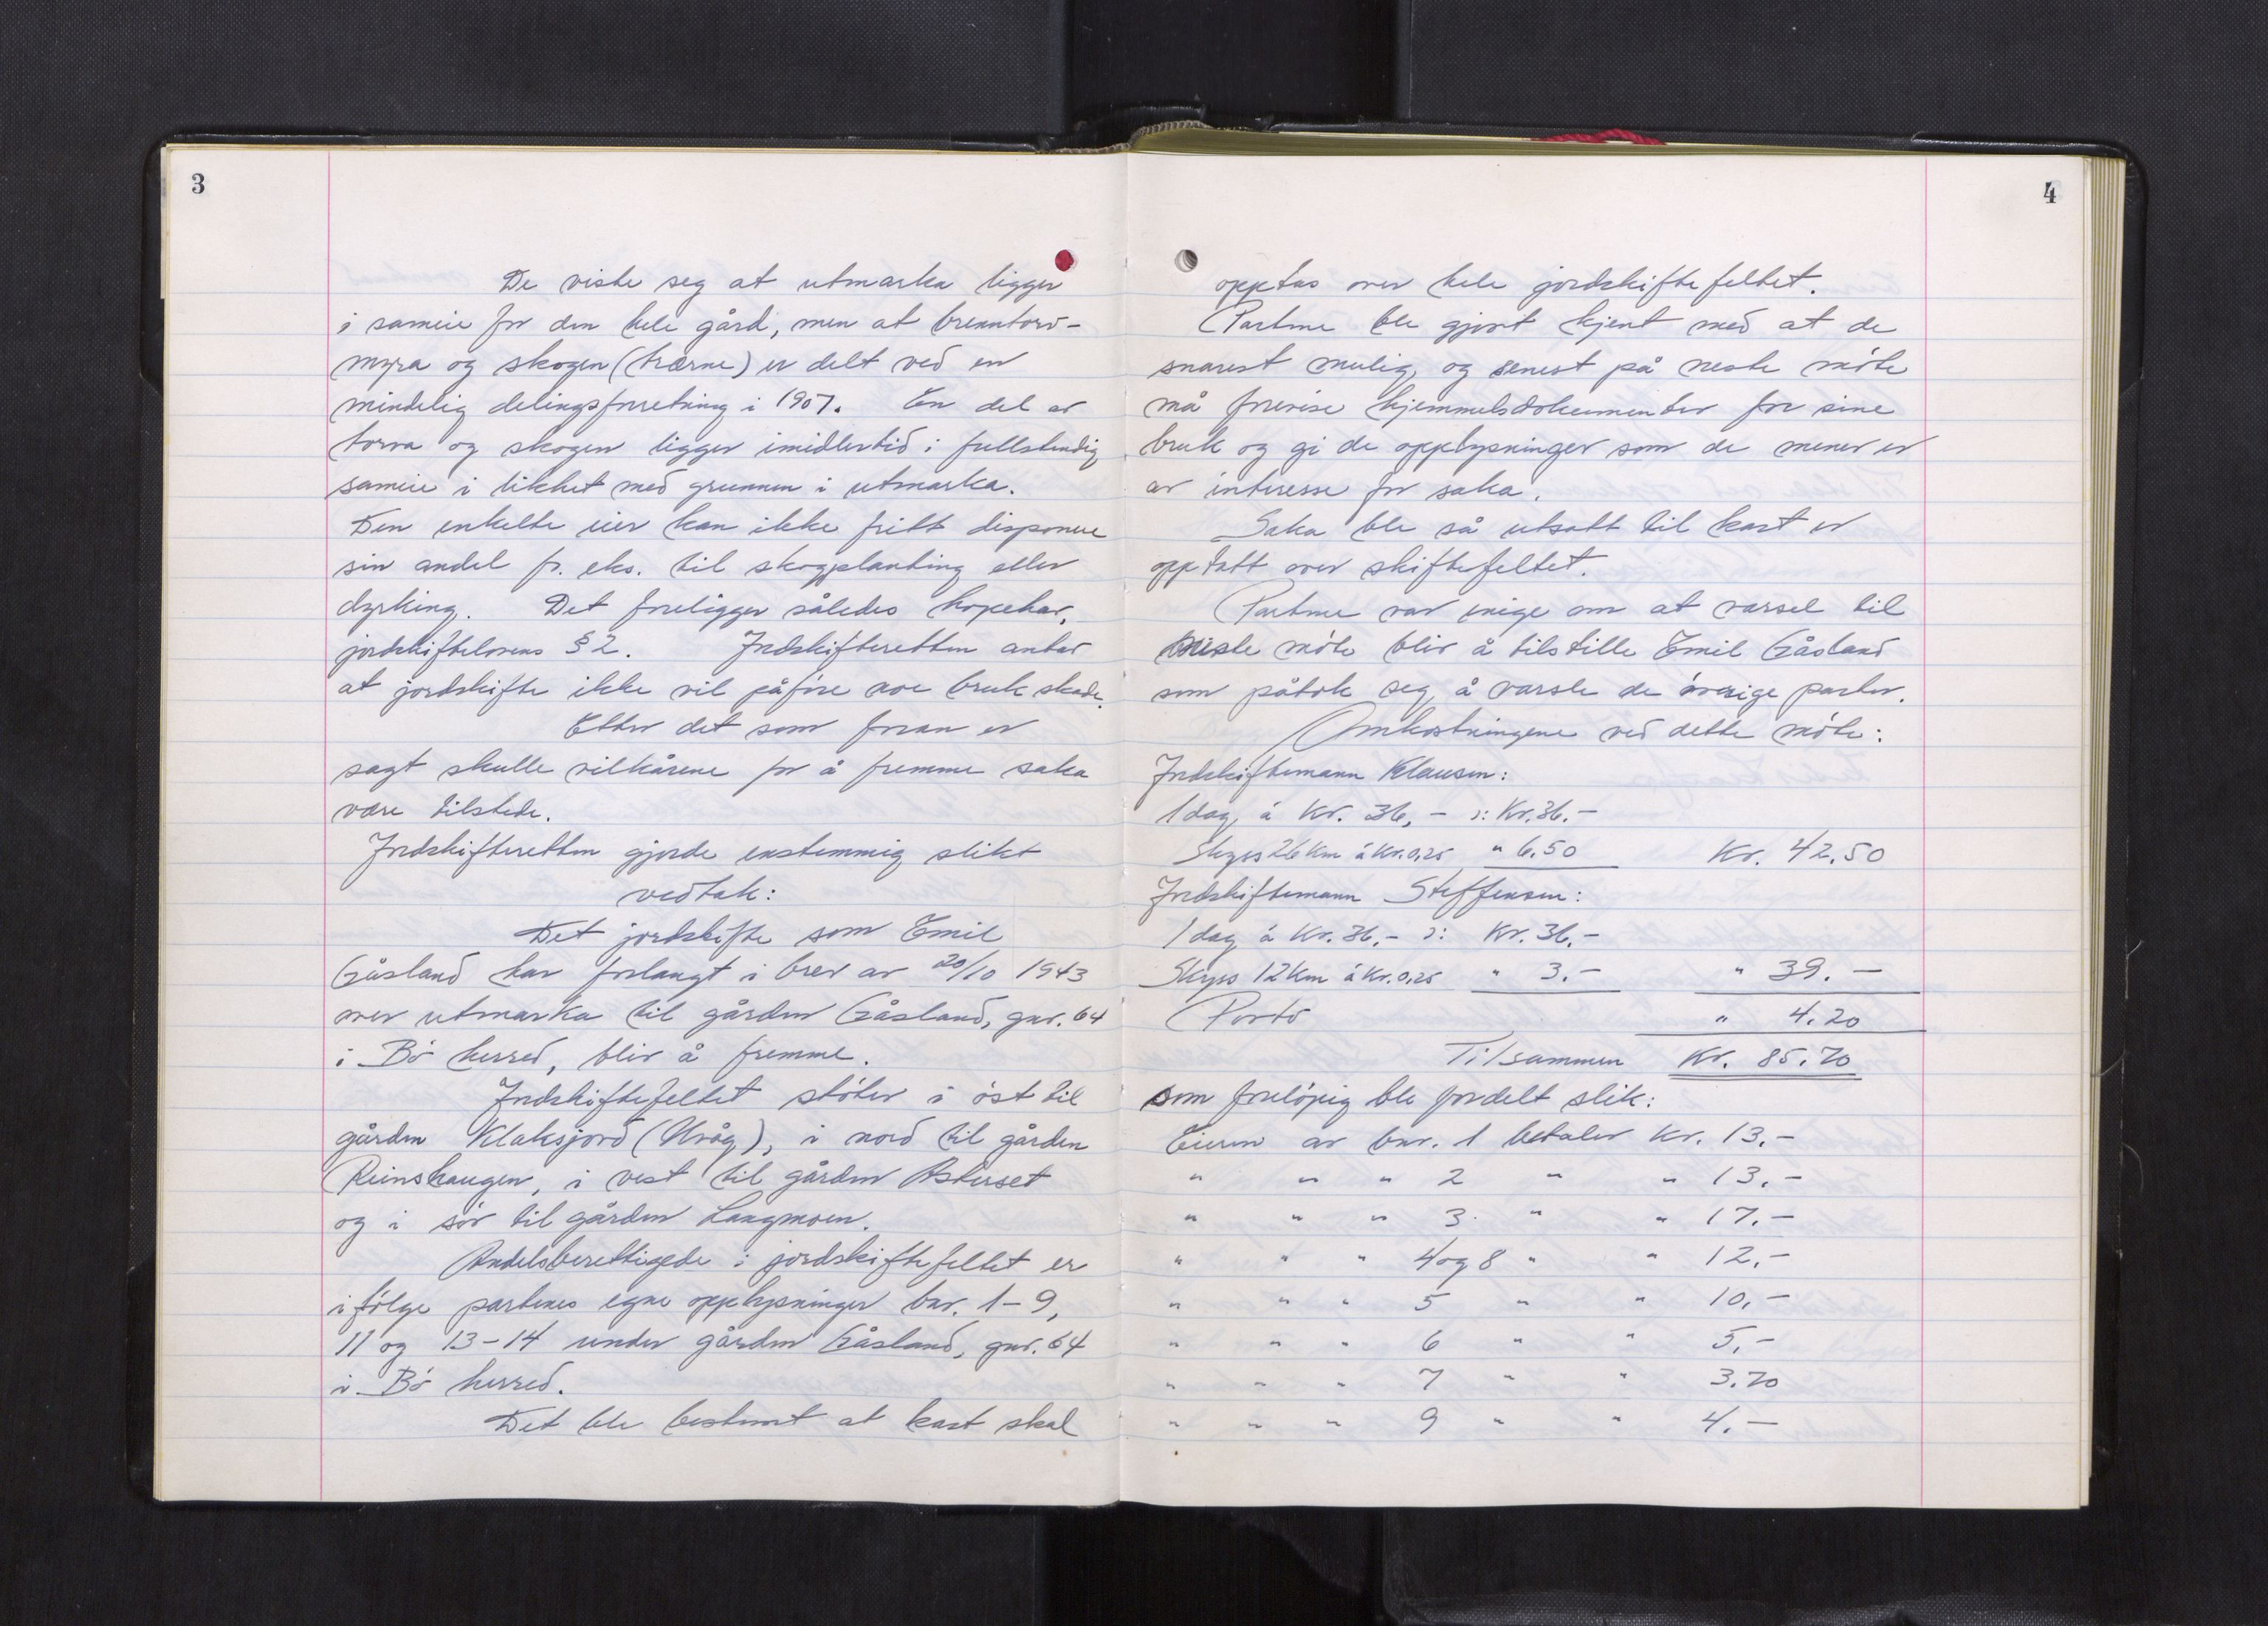 3
De viste seg at utmarka ligger
i sameie for den hele gård, men at brenntorv-
myra og skogen (trærne) er delt ved en
mindelig delingsforretning i 1907. En del av
torva og skogen ligger imidlertid i fullstendig
sameie i likhet med grunnen i utmarka.
Den enkelte eier kan ikke fritt disponere
sin andel f. eks. til skogplanting eller
dyrking. Det foreligger således hopehav,
jordskiftelovens § 2. Jordskifteretten antar
at jordskifte ikke vil påføre noe bruk skade.
Etter det som foran er
sagt skulle vilkårene for å fremme saka
være tilstede.
Jordskifteretten gjorde enstemmig slikt
vedtak:
Det jordskifte som Emil
Gåsland har forlangt i brev av 20/10 1943
over utmarka til gården Gåsland, gnr. 64
i Bø herred, blir å fremme.
Jordskiftefeltet støter i øst til
gården Klaksjord (Uvåg), i nord til gården
Reinshaugen, i vest til gården Asterset
og i sør til gården Langmoen.
Andelsberettigede i jordskiftefeltet er
ifølge partenes egne opplysninger bnr. 1-9,
11 og 13-14 under gården Gåsland, gnr. 64
i Bø herred.
Det ble bestemt at kart skal
4
opptas over hele jordskiftefeltet.
Partene ble gjort kjent med at de
snarest mulig, og senest på neste møte
må forevise hjemmelsdokumenter for sine
bruk og gi de opplysninger som de mener er
av interesse for saka.
Saka ble så utsatt til kart er
opptatt over skiftefeltet.
Partene var enige om at varsel til
neste møte blir å tilstille Emil Gåsland
som påtok seg å varsle de øvrige parter.
Omkostningene ved dette møte:
Jordskiftemann Klausen:
1 dag á kr. 36,- ɔ: Kr. 36.-
Skyss 26 km á kr. 0,25 " 6.50 Kr. 42.50
Jordskiftemann Steffensen:
1 dag á kr. 36.- ɔ: kr. 36.-
Skyss 12 km á kr. 0,25 " 3.- " 39.-
Porto " 4.20
Tilsammen kr. 85.70
som foreløpig ble fordelt slik:
Eieren av bnr. 1 betaler kr. 13.-
" " " 2 " " 13.-
" " " 3 " " 17.-
" " " 4 og 8 " " 12.-
" " " 5 " " 10.-
" " " 6 " " 5.-
" " " 7 " " 3.70
" " " 9 " " 4.-